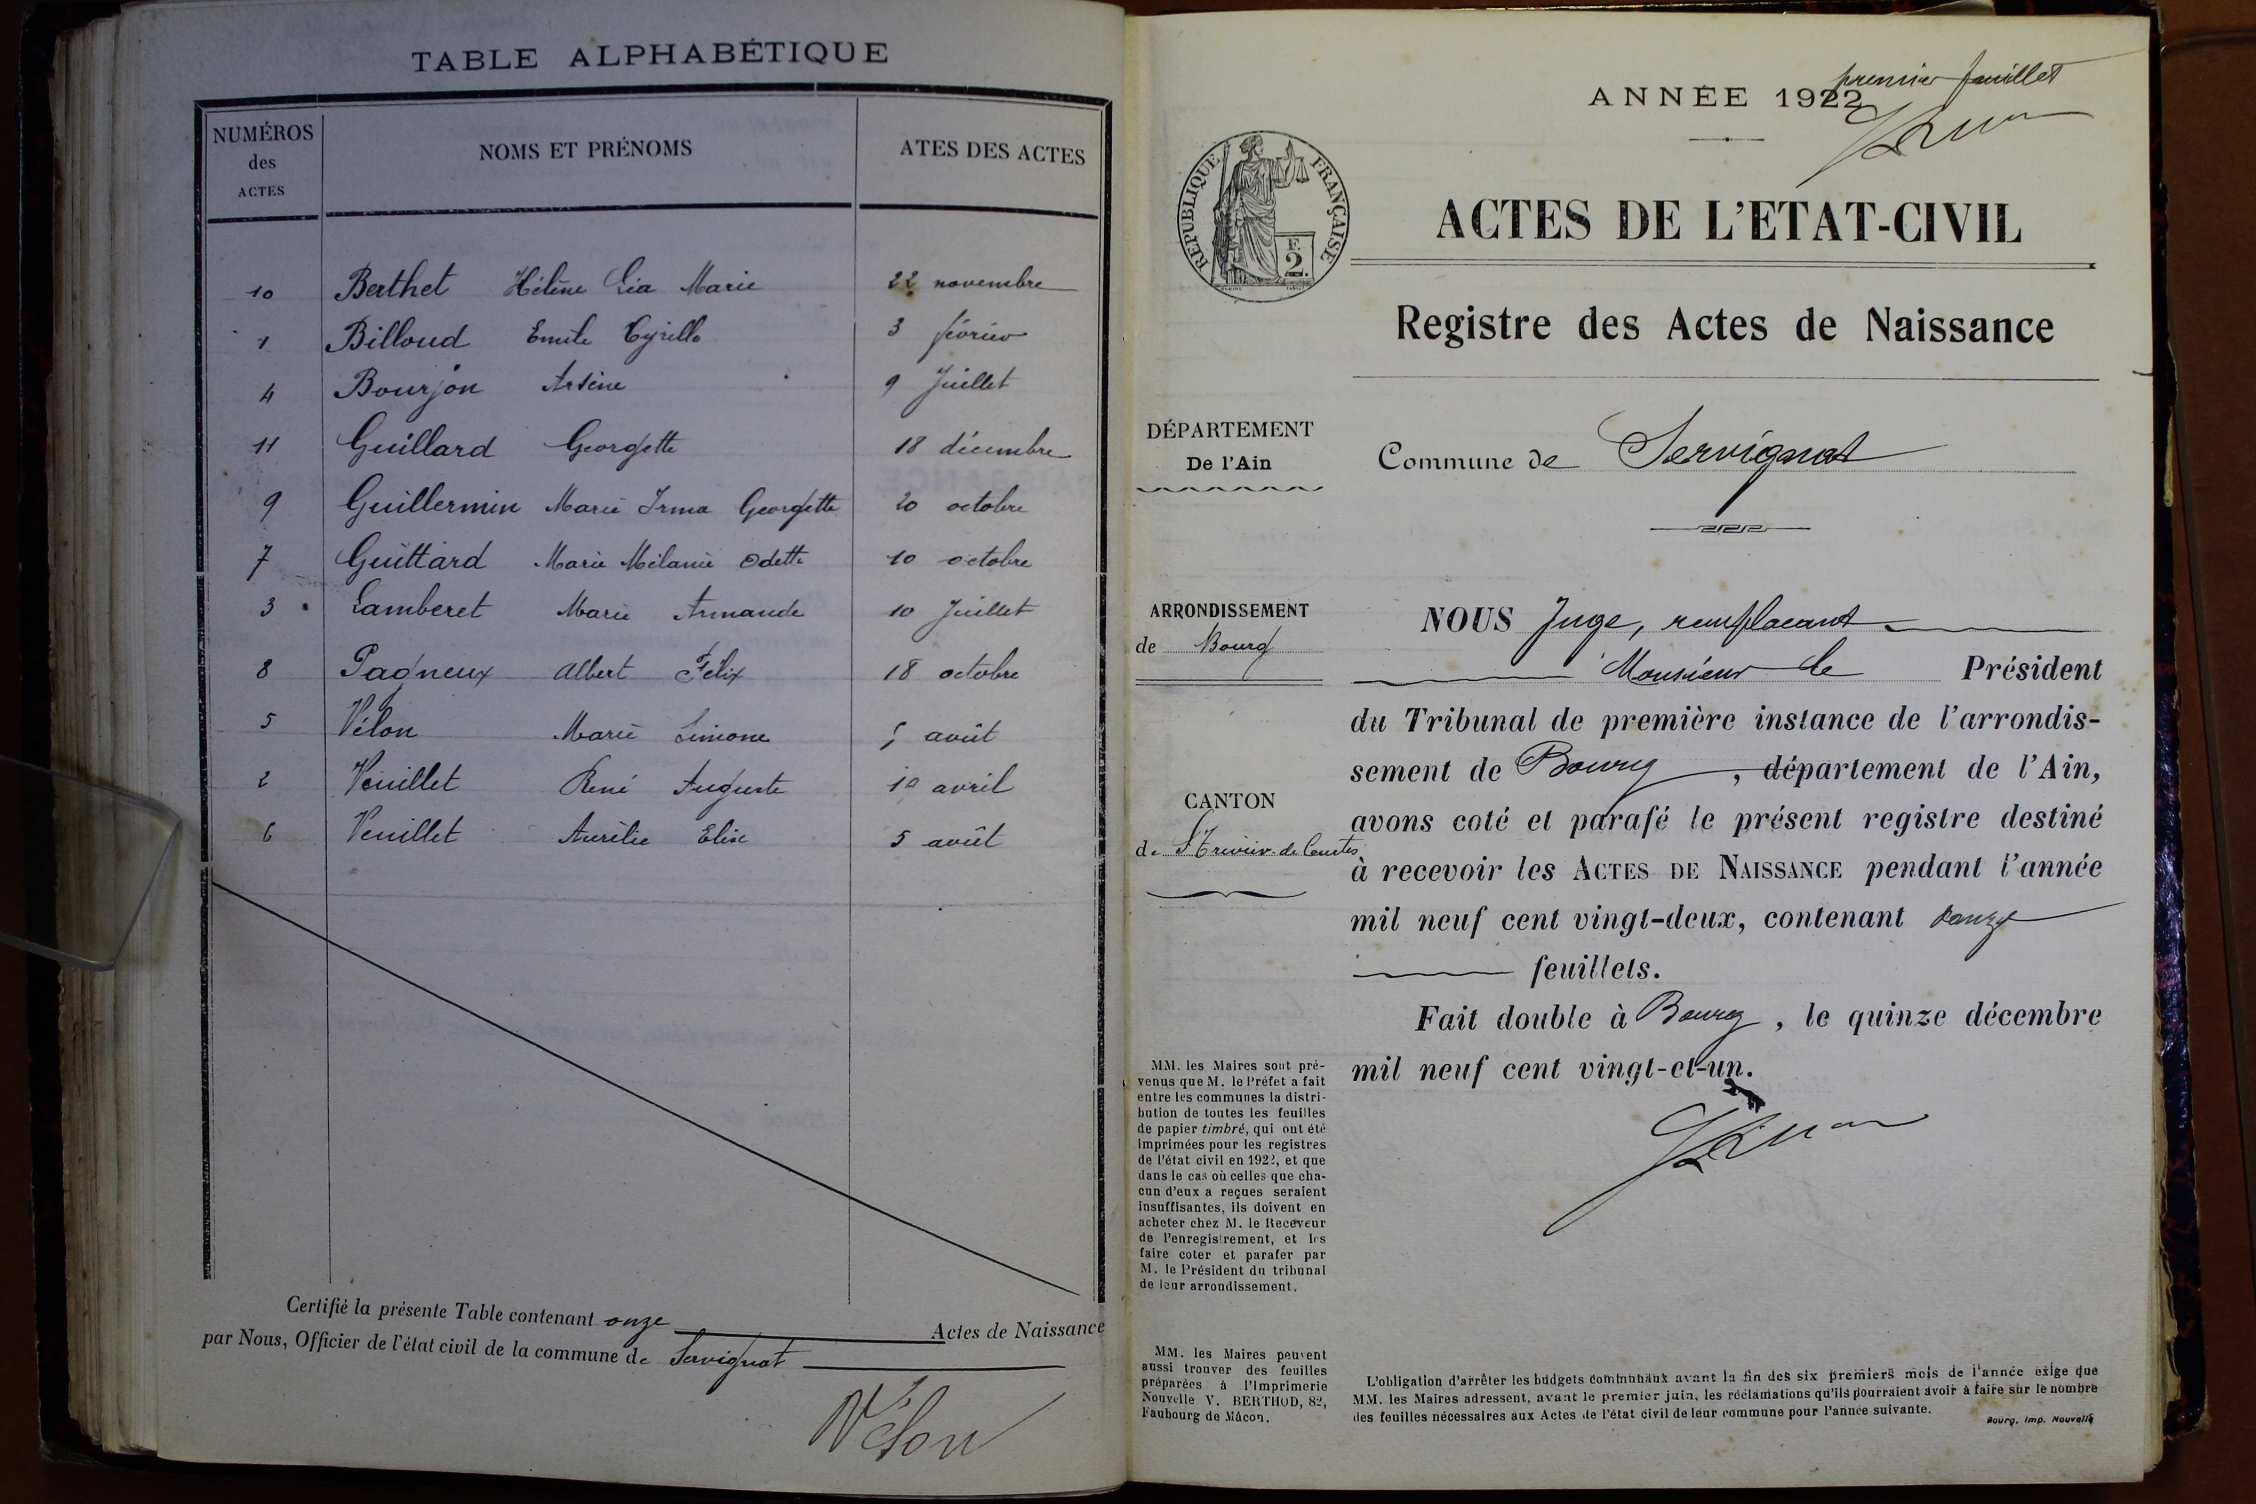 TABLE ALPHABÉTIQUE
NUMÉROS des ACTES
NOMS ET PRÉNOMS
ATES DES ACTES
10 Berthet Hélène Léa Marie 22 novembre
1 Billoud Emile Cyrille 3 février
4 Bourjon Arsène 9 Juillet
11 Guillard Georgette 18 décembre
9 Guillermin Marie Irma Georgette 20 octobre
7 Guittard Marie Mélanie Odette 10 octobre
3 Lamberet Marie Armande 10 Juillet
8 Pagneux Albert Félix 18 octobre
5 Vélon Marie Simone 5 août
2 Veuillet René Auguste 10 avril
6 Veuillet Aurélie Elise 5 août
Certifié la présente Table contenant onze Actes de Naissance
par Nous, Officier de l'état civil de la commune de Servignat
Vélon
premier feuillet
ANNÉE 1922
RÉPUBLIQUE FRANÇAISE
F.
2.
ACTES DE L'ETAT-CIVIL
Registre des Actes de Naissance
DÉPARTEMENT
De l'Ain
Commune de Servignat
ARRONDISSEMENT
de Bourg
CANTON
de St Trivier-de Courtes
NOUS Juge, remplacant
Monsieur le Président
du Tribunal de première instance de l'arrondis-
sement de Bourg, département de l'Ain,
avons coté et parafé le présent registre destiné
à recevoir les ACTES DE NAISSANCE pendant l'année
mil neuf cent vingt-deux, contenant
feuillets.
Fait double à Bourg, le quinze décembre
mil neuf cent vingt-et-un.
MM. les Maires sont pré-
venus que M. le Préfet a fait
entre les communes la distri-
bution de toutes les feuilles
de papier timbré, qui ont été
imprimées pour les registres
de l'état civil en 1922, et que
dans le cas où celles que cha-
cun d'eux a reçues seraient
insuffisantes, ils doivent en
acheter chez M. le Receveur
de l'enregistrement, et les
faire coter et parafer par
M. le Président du tribunal
de leur arrondissement.
MM. les Maires peuvent
aussi trouver des feuilles
préparées à l'Imprimerie
Nouvelle V. BERTHOD, 82,
Faubourg de Mâcon.
L'obligation d'arrêter les budgets communaux avant la fin des six premiers mois de l'année exige que
MM. les Maires adressent, avant le premier juin, les réclamations qu'ils pourraient avoir à faire sur le nombre
des feuilles nécessaires aux Actes de l'état civil de leur commune pour l'année suivante.
Bourg, Imp. Nouvelle